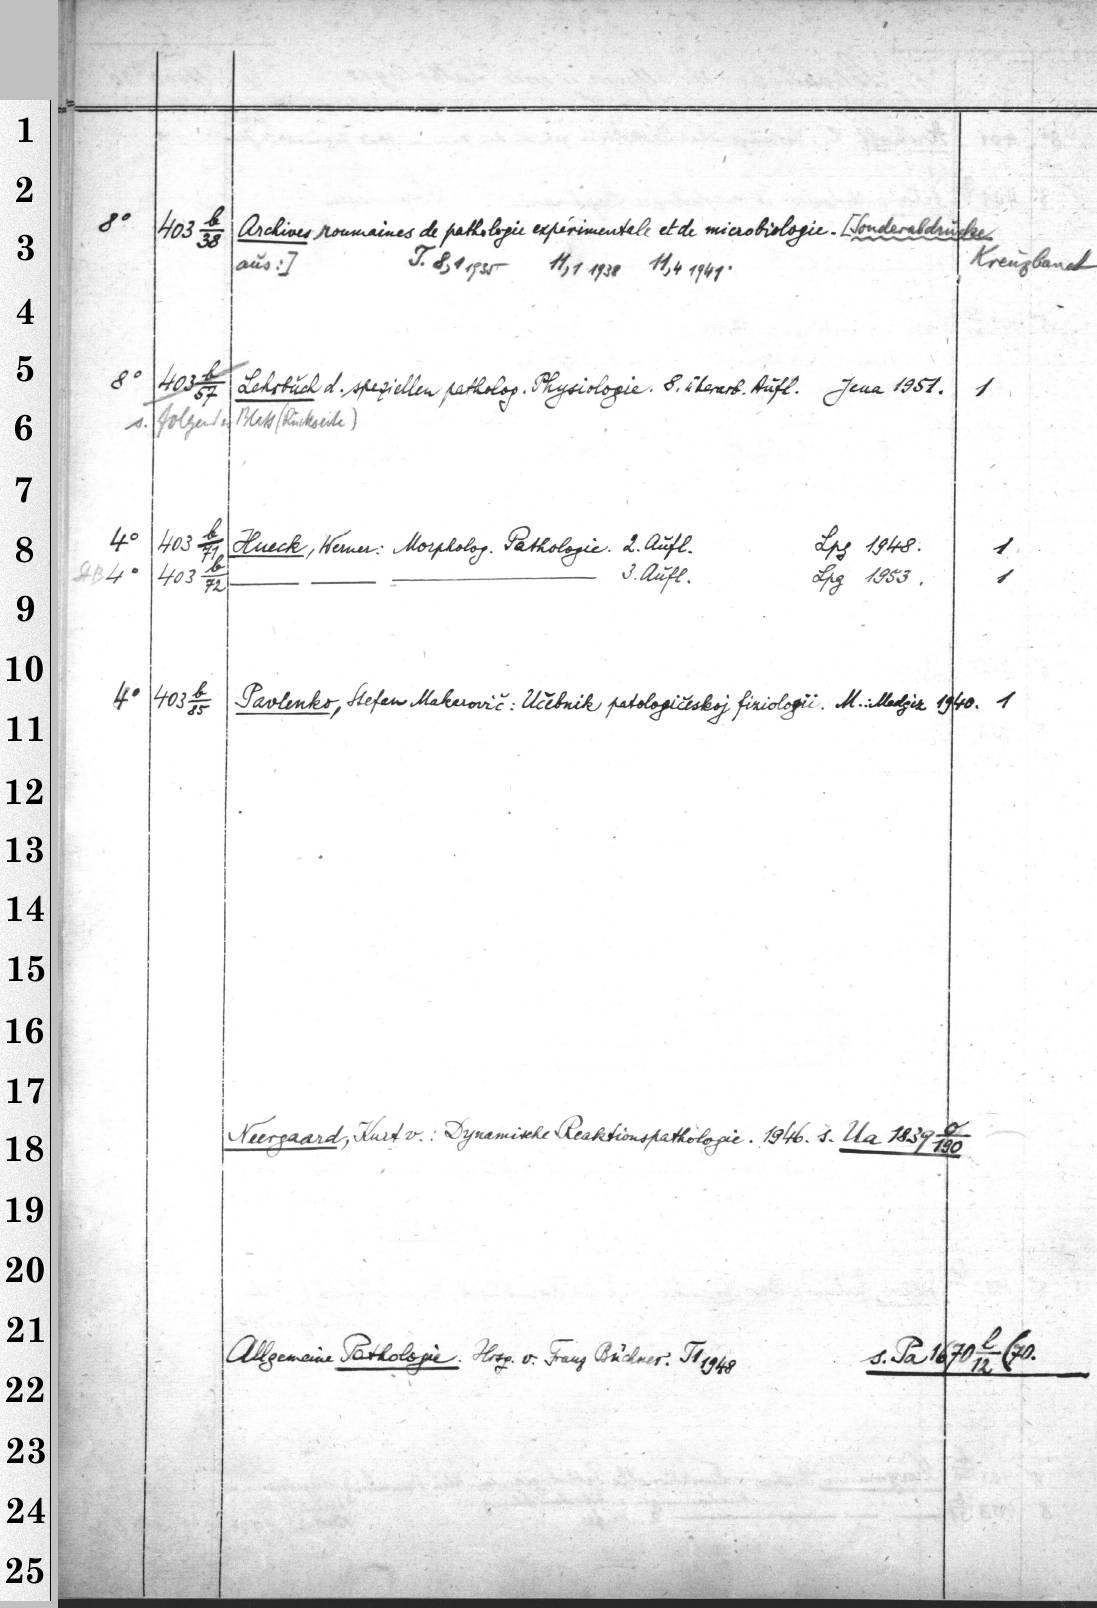 1
2
8° 403 b/38 Archives roumaines de pathologie expérimentale et de microbiologie. [Sonderabdrücke
3
aus:] T. 8,1 1935 11,1 1938 11,4 1941. Kreuzband
4
5
8° 403 b/57 Lehrbuch d. speziellen patholog. Physiologie. 8. überarb. Aufl. Jena 1951. 1
6
s. folgendes Blatt (Rückseite)
7
4° 403 b/71 Hueck, Werner: Morpholog. Pathologie. 2. Aufl. Lpg 1948. 1
8
4° 403 b/72 —— —— —— 3. Aufl. Lpg 1953. 1
9
10
4° 403 b/85 Pavlenko, Stefan Makarovič: Učebnik patologičeskoj fiziologii. M.: Medgiz 1940. 1
11
12
13
14
15
16
17
Neergaard, Kurt v.: Dynamische Reaktionspathologie. 1946. s. Ua 1839 /190
18
19
20
21
Allgemeine Pathologie. Hrsg. v. Franz Büchner. T1 1948 s. Pa 1670 l/12 (70.
22
23
24
25